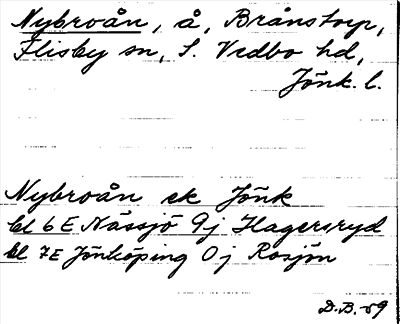 Nybroån, å, Brånstorp,
Flisby sn, S. Vedbo hd,
Jönk. l.
Nybroån ek Jönk
bl 6E Nässjö 9j Hagersryd
bl 7E Jönköping 0j Rosjön
D.B.-59